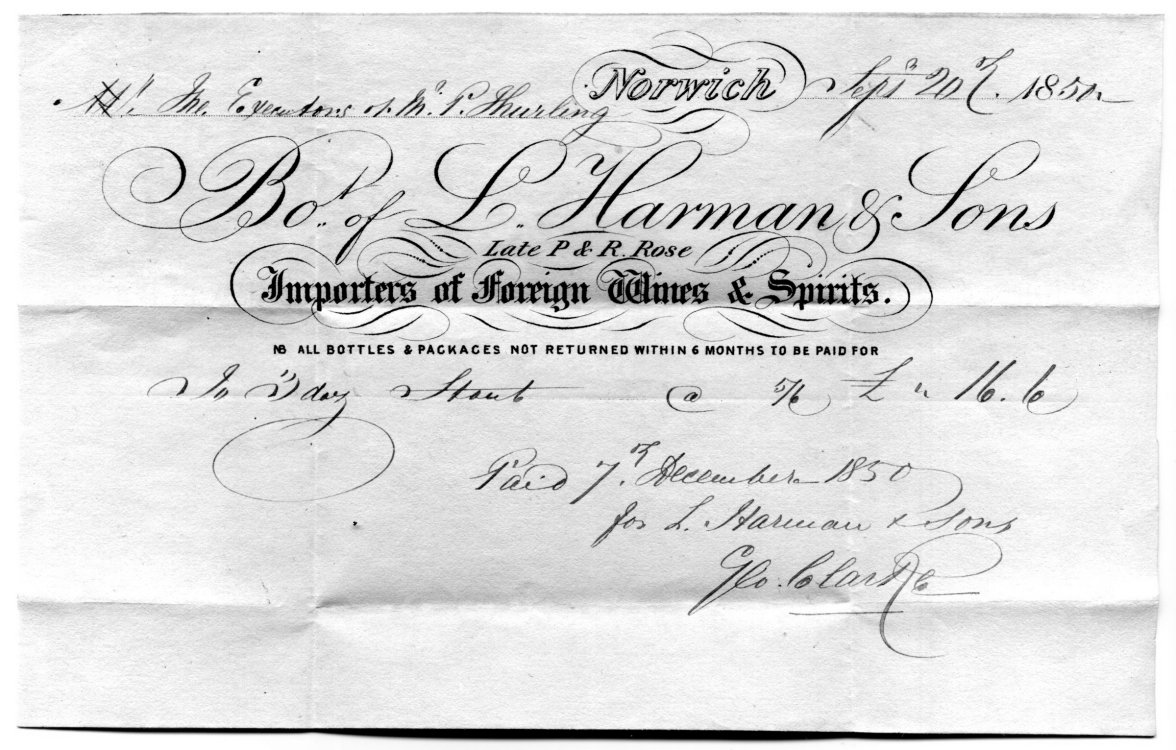 Norwich Sept 20th 1850
Mr. The Executors of Mr. P. Thurling
Bot. of L. Harman & Sons
Late P & R. Rose
Importers of Foreign Wines & Spirits.
NB ALL BOTTLES & PACKAGES NOT RETURNED WITHIN 6 MONTHS TO BE PAID FOR
To 3 doz Stout @ 5/6 £ " 16. 6
Paid 7th December 1850
for L. Harman & Sons
Geo. Clarke